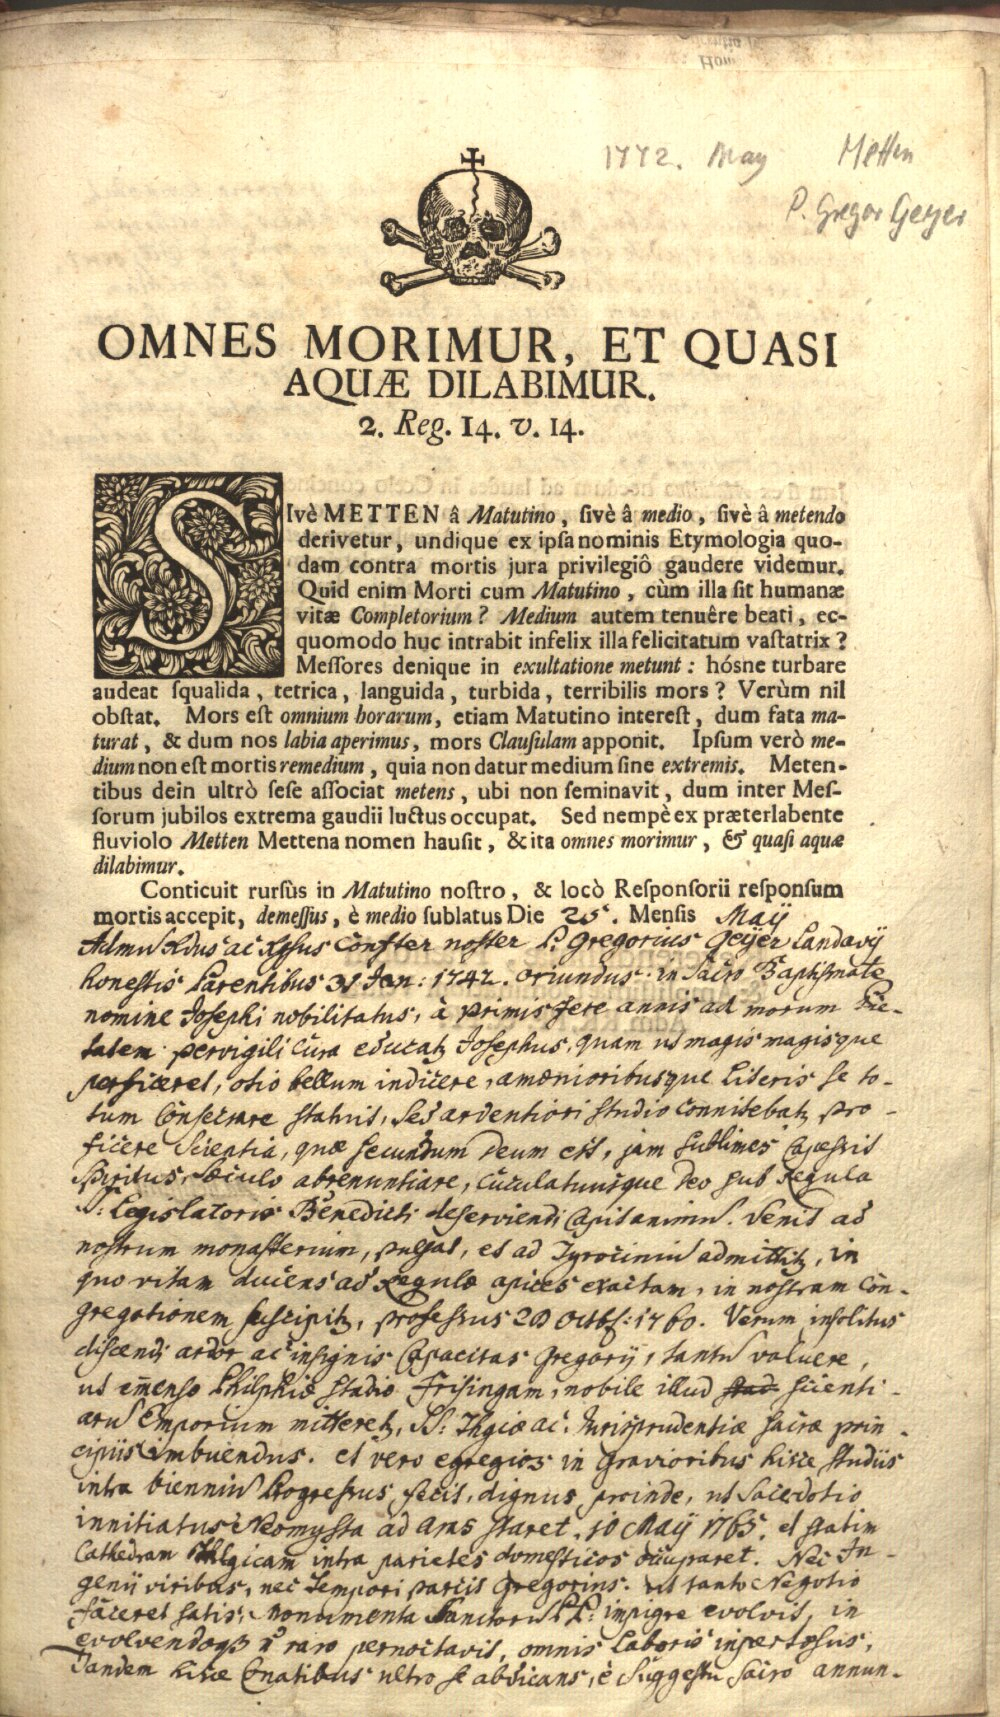 1772. May Metten
P. Gregor Geyer
OMNES MORIMUR, ET QUASI
AQUÆ DILABIMUR.
2. Reg. 14. v. 14.
SIvè METTEN â Matutino, sivè â medio, sivè â metendo
derivetur, undique ex ipsa nominis Etymologia quo-
dam contra mortis jura privilegiô gaudere videmur.
Quid enim Morti cum Matutino, cùm illa sit humanæ
vitæ Completorium? Medium autem tenuêre beati, ec-
quomodo huc intrabit infelix illa felicitatum vastatrix?
Messores denique in exultatione metunt: hósne turbare
audeat squalida, tetrica, languida, turbida, terribilis mors? Verùm nil
obstat. Mors est omnium horarum, etiam Matutino interest, dum fata ma-
turat, & dum nos labia aperimus, mors Clausulam apponit. Ipsum verò me-
dium non est mortis remedium, quia non datur medium sine extremis. Meten-
tibus dein ultrò sese associat metens, ubi non seminavit, dum inter Mes-
sorum jubilos extrema gaudii luctus occupat. Sed nempè ex præterlabente
fluviolo Metten Mettena nomen hausit, & ita omnes morimur, & quasi aquæ
dilabimur.
Conticuit rursùs in Matutino nostro, & locò Responsorii responsum
mortis accepit, demessus, è medio sublatus Die 25. Mensis Maÿ
Admu Rdus ac Rssus Confter noster P. Gregorius Geÿer Landavÿ
honestis Parentibus 31 Jan: 1742. oriundus. in sacro Baptismate
nomine Josephi nobilitatus, à primis fere annis ad morum Pie-
tatem pervigili cura educatq Josephus, quam ut magis magisque
perficeret, otio bellum indicere, amænioribusque Literis se to-
tum Consecrare statuit, sed ardentiori studio connitebatq pro-
ficere scientia, quæ secundum Deum est, jam sublimes Capessit
Spiritus, sæculo abrenuntiare, cucullatuusque Deo sub Regula
S: Legislatoris Benedicti deserviendi Capit animu. Venit ad
nostrum monasterium, pulsat, et ad Tyrociniu admittitq, in
quo vitam ducens ad Regulæ apices exactam, in nostram Con-
gregationem suscipitq, professus 20 Octbs: 1760. Verum insolitus
discendi ardor ac insignis Capacitas Gregorÿ, tantu valuere,
ut em̄enso Philphiæ stadio Frisingam, nobile illud scienti-
aru Emporium mitteretq, SS: Thgiæ ac Jurisprudentiæ sacræ prin-
cipiis imbuendus. et vero egregios in gravioribus hisce studiis
intra bienniu Progressus fecit, dignus proinde, ut sacerdotio
innitiatus Neomysta ad aras staret, 10 Maÿ 1765. et statim
Cathedram Thlgicam intra parietes domesticos occuparet. Nec In-
genii viribus, nec Tempori parcit Gregorius. ut tanto Negotio
faceret satis, Monumenta Sanctoru PP: impigre evolvit, in
evolvendoq n̄ raro pernoctavit, omnis Laboris inpertæsus,
Tandem hisce Conatibus ultro se abdicans, è suggestu sacro annun-